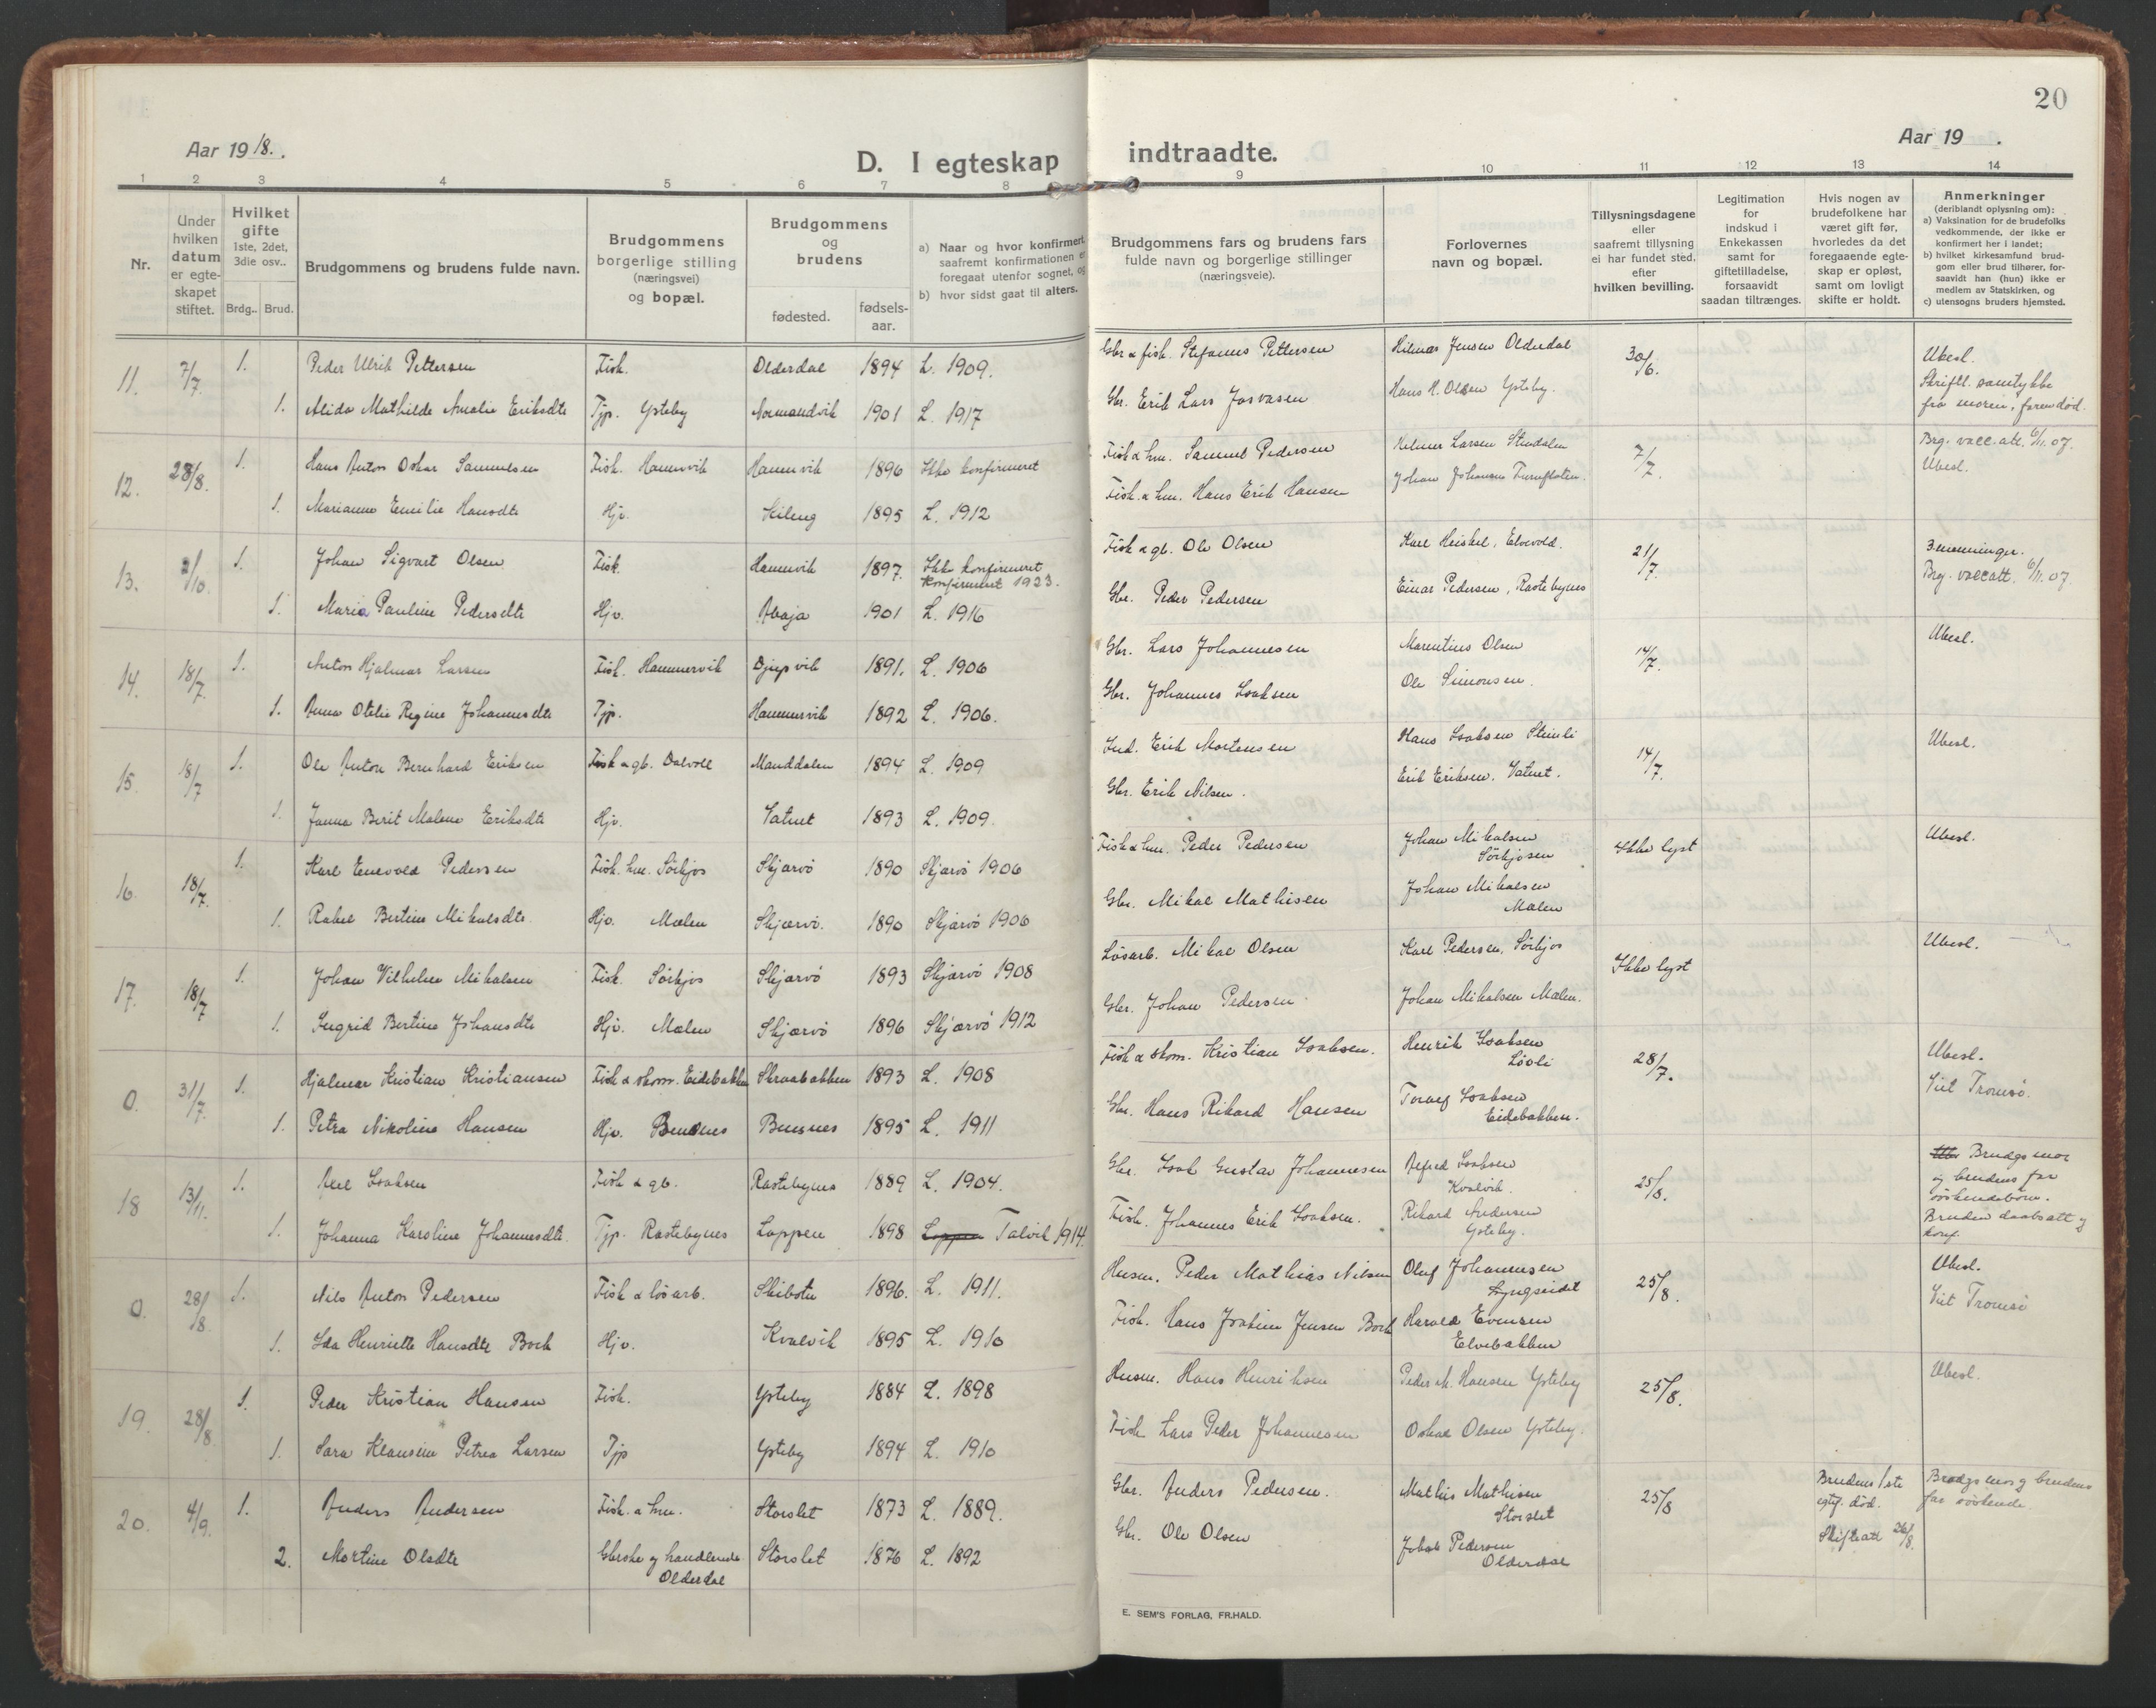 20
Aar 1918.
D. I egteskap indtraadte.
Aar 19 .
1 2 3 4 5 6 7 8 9 10 11 12 13 14
Nr.
Under hvilken datum er egte-skapet stiftet.
Hvilket gifte
1ste, 2det, 3die osv..
Brdg.. Brud.
Brudgommens og brudens fulde navn.
Brudgommens borgerlige stilling (næringsvei) og bopæl.
Brudgommens og brudens
fødested. fødsels-aar.
a) Naar og hvor konfirmert, saafremt konfirmationen er foregaat utenfor sognet, og
b) hvor sidst gaat til alters.
Brudgommens fars og brudens fars fulde navn og borgerlige stillinger (næringsveie).
Forlovernes navn og bopæl.
Tillysningsdagene eller saafremt tillysning ei har fundet sted, efter hvilken bevilling.
Legitimation for indskud i Enkekassen samt for giftetilladelse, forsaavidt saadan tiltrænges.
Hvis nogen av brudefolkene har været gift før, hvorledes da det foregaaende egte-skap er opløst, samt om lovligt skifte er holdt.
Anmerkninger
(deriblandt oplysning om):
a) Vaksination for de brudefolks vedkommende, der ikke er konfirmert her i landet;
b) hvilket kirkesamfund brud-gom eller brud tilhører, for-saavidt han (hun) ikke er medlem av Statskirken, og
c) utensogns bruders hjemsted.
11. 7/7. 1. Peder Ulrik Pettersen Fisk. Olderdal 1894 L. 1909. Gbr & fisk. Stefanus Pettersen Hilmar Jensen Olderdal 30/6. Ubesl.
1. Alida Mathilde Amalie Eriksdtr Tjp. Ysteby Normandvik 1901 L. 1917 Gbr. Erik Lars Josvasen Hans H. Olsen Ysteby. Skriftl. samtykke
fra moren, faren død.
12. 28/8. 1. Hans Anton Oskar Samuelsen Fisk. Hamnvik Hamnvik 1896 Ikke konfirmeret Fisk & hm. Samuel Pedersen Helmer Larsen Stendalen 7/7. Brg. vacc.att. 6/11. 07.
Ubesl.
1. Marianne Emilie Hansdtr Hjv. Skileng 1895 L. 1912 Fisk. & hm. Hans Erik Hansen Johan Johansen
13. 2/10. 1. Johan Sigvart Olsen Fisk. Hamnvik 1897. Ikke konfirmeret Fisk & gb. Ole Olsen Karl Heiskel, Elvevold. 21/7. 3.menninger.
Konfirmert 1923. Brg. vaccatt. 6/11. 07
1. Maria Pauline Pedersdtr Hjv. Avaja 1901 L. 1916 Gbr. Peder Pedersen Einar Pedersen, Rastebynes
14. 18/7. 1. Anton Hjalmar Larsen Fisk. Hammervik Djupvik 1891. L. 1906 Gbr. Lars Johannesen Marentius Olsen 14/7. Ubesl.
1. Anna Otelie Regine Johannesdtr Tjp. Hammervik 1892 L. 1906. Gbr. Johannes Isaksen Ole Simonsen.
15. 18/7 1. Ole Anton Bernhard Eriksen Fisk & gb. Dalvoll Manddalen 1894 L. 1909 Ind. Erik Mortensen Hans Isaksen Steinli 14/7. Ubesl.
1. Janna Berit Malene Eriksdtr Hjv. Vatnet 1893 L. 1909. Gbr. Erik Nilsen. Erik Eriksen. Vatnet.
16. 18/7. 1. Karl Enevold Pedersen Fisk. hm. Sörkjos Skjærvö 1890 Skjærvö 1906 Fisk & hm. Peder Pedersen Johan Mikalsen Sörkjosen Ikke lyst Ubesl.
1. Rakel Bertine Mikalsdtr. Hjv. Mælen Skjærvö. 1890 Skjærvö 1906 Gbr. Mikal Mathisen Johan Mikalsen Mælen
17. 18/7 1. Johan Vilhelm Mikalsen Fisk. Sörkjos Skjærvö 1893 Skjærvö 1908 Løsarb. Mikal Olsen Karl Pedersen, Sörkjos Ikke lyst Ubesl.
1. Ingrid Bertine Johansdtr Hjv. Mælen Skjærvö 1896 Skjærvö 1912 Gbr. Johan Pedersen. Johan Mikalsen Mælen.
0. 31/7. 1. Hjalmar Kristian Kristiansen Fisk & skom. Eidebakken Skraabakken 1893 L. 1908 Fisk & skom. Kristian Isaksen. Henrik Isaksen Lövli 28/7. Ubesl.
Viet Tromsö.
1. Petra Nikoline Hansen Hjv. Bensnes Bensnes 1895 L. 1911 Gbr. Hans Rikard Hansen Toralf Isaksen Eidebakken.
18 13/11. 1. Axel Isaksen Fisk & gb. Rastebynes 1889 L. 1904. Gbr. Isak Gustav Johannesen Alfred Isaksen Kvalvik. 25/8. Brudgs mor
og brudens far
söskendebörn.
1. Johanna Karoline Johannesdtr. Tjp. Rastebynes Loppen 1898 Loppen Talvik 1914. Fisk. Johannes Erik Isaksen. Rikard Andersen Ysteby. Bruden daabsatt og
konf.
0. 28/8. 1. Nils Anton Pedersen Fisk & lösarb. Skibotn 1896. L. 1911. Husm. Peder Mathias Nilsen Oluf Johannesen Lyngseidet 25/8. Ubesl.
Viet Tromsö
1. Ida Henriette Hansdtr Bock Hjv. Kvalvik 1895 L. 1910 Fisk. Hans Joakim Jensen Bock Harald Evensen Elvebakken
19. 28/8 1. Peder Kristian Hansen Fisk. Ysteby 1884 L. 1898 Husm. Hans Henriksen Peder M. Hansen Ysteby 25/8. Ubesl.
1. Sara Klausine Petrea Larsen Tjp Ysteby 1894 L. 1910 Fisk Lars Peder Johannesen Oskar Olsen Ysteby.
20. 4/9. 1. Anders Andersen Fisk. & hm. Storslet 1873 L. 1889. Gbr. Anders Pedersen. Mathis Mathisen Storslet 25/8 Brudens 1ste
egtf. död. Brudgs mor og brudens
far söskende
2. Martine Olsdtr Gbrske og handlende Olderdal Storslet 1876 L. 1892 Gbr. Ole Olsen Jakob Pedersen Olderdal Skifteatt 26/8.
E. SEM'S FORLAG, FR.HALD.